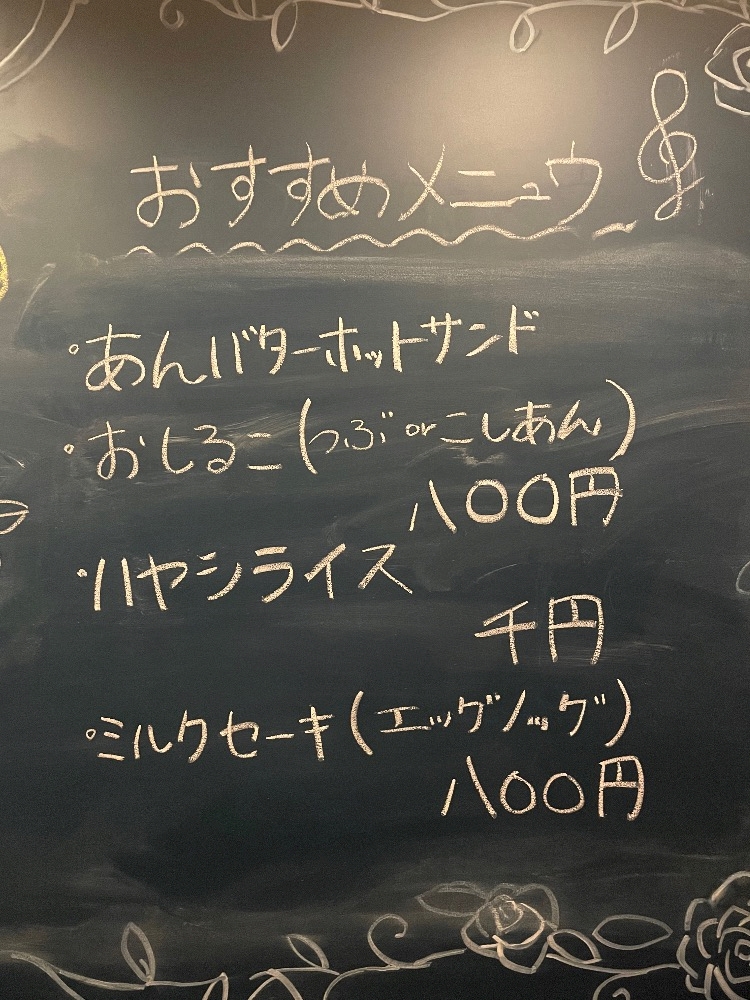 おすすめメニュウ
・あんバターホットサンド
・おしるこ(つぶorこしあん)
八〇〇円
・ハヤシライス
千円
・ミルクセーキ(エッグノッグ)
八〇〇円